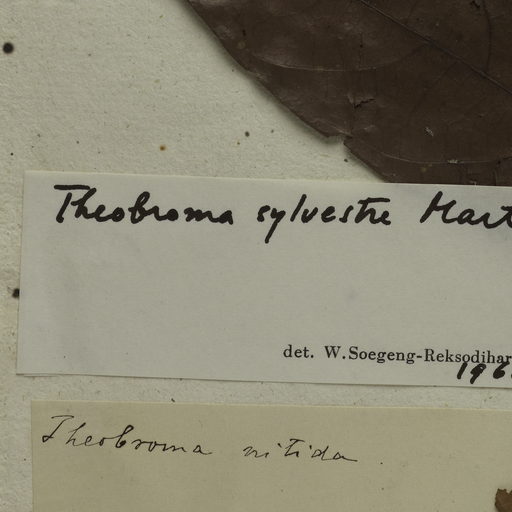 Theobroma sylvestre Mart
det. W.Soegeng-Reksodihar
196
Theobroma nitida